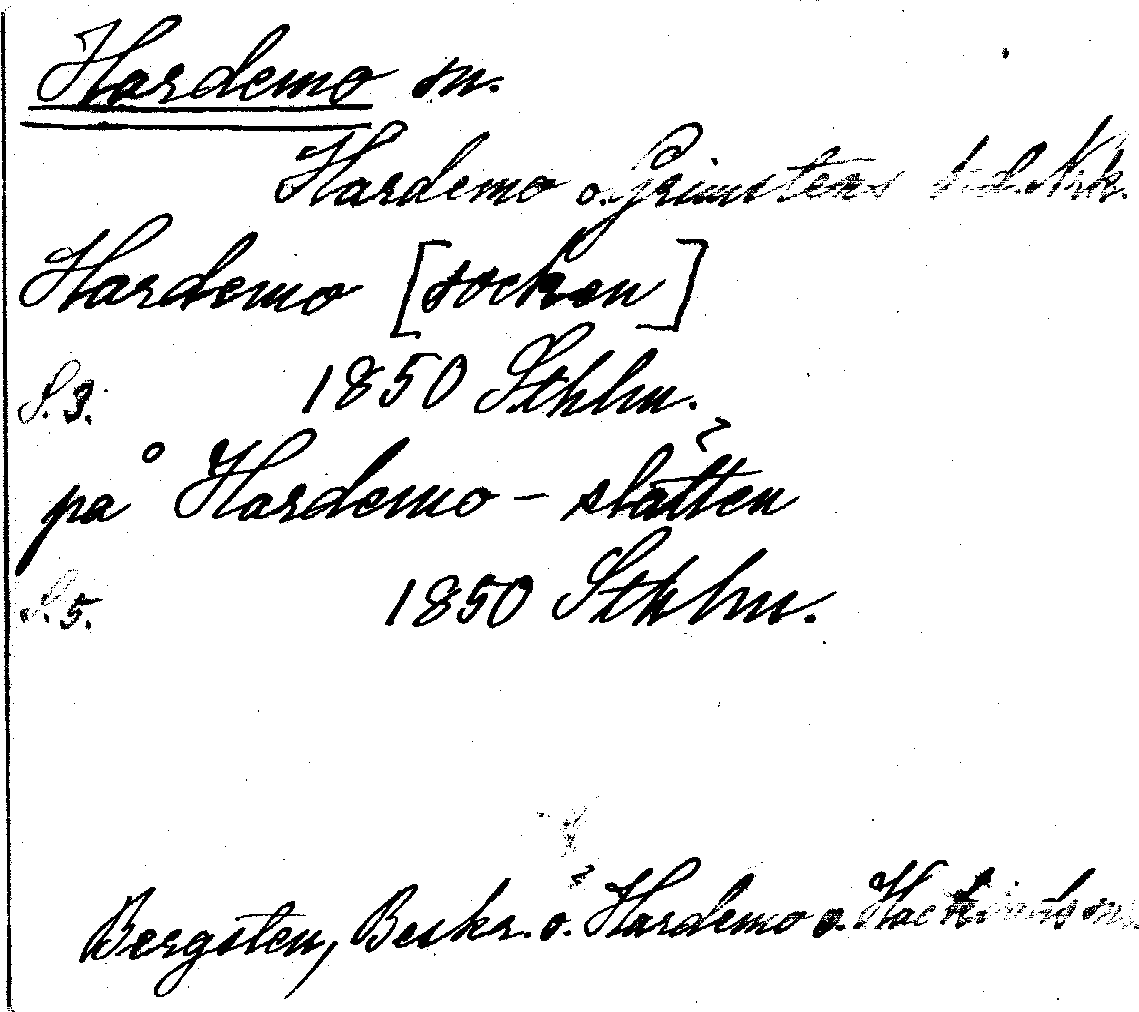 Hardemo sn.
Hardemo o. Grimstens hd. Nrk.
Hardemo [socken]
S. 3. 1850 Sthlm.
på Hardemo-slätten
S. 5. 1850 Sthlm.
Bergsten, Beskr. ö. Hardemo o. Hackvads sn.